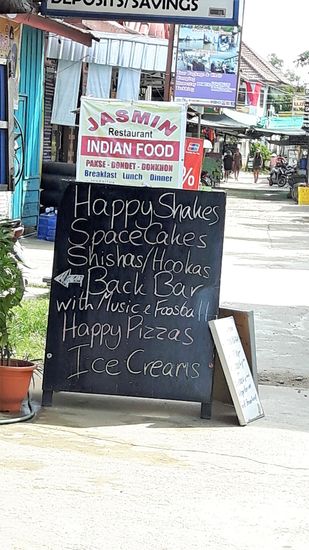 DEPOSITS/SAVINGS
JASMIN
Restaurant
INDIAN FOOD
PAKSE - DONDET - DONKHON
Breakfast Lunch Dinner
%
Happy Shakes
Space Cakes
Shishas/Hookas
Back Bar
with Music & Foosball
Happy Pizzas
Ice Creams